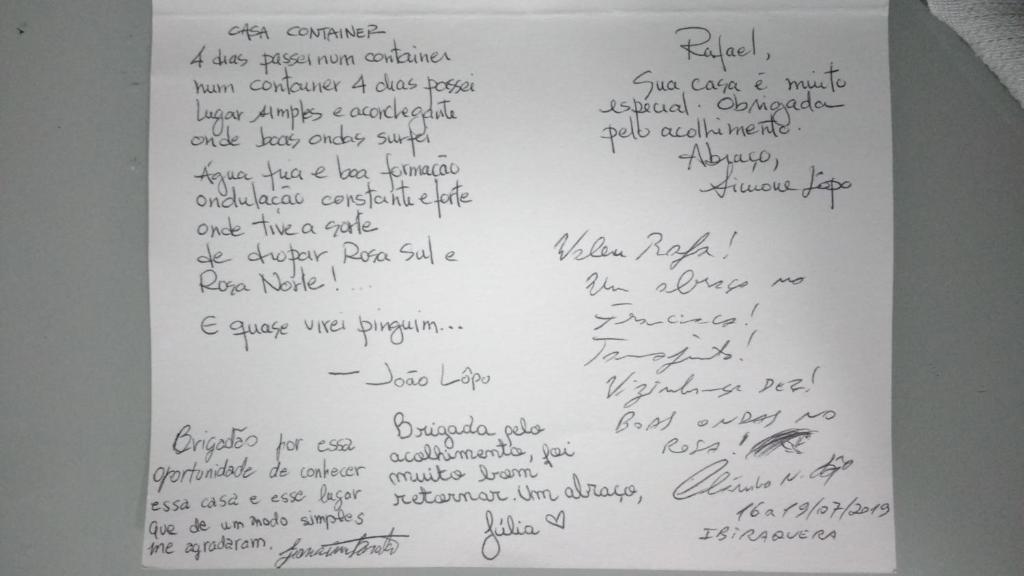 CASA CONTAINER
4 dias passei num container
num container 4 dias passei
Lugar simples e aconchegante
onde boas ondas surfei
Água fria e boa formação
ondulação constante e forte
onde tive a sorte
de dropar Rosa Sul e
Rosa Norte!...
E quase virei pinguim...
— João Lôpo
Rafael,
Sua casa é muito
especial. Obrigada
pelo acolhimento.
Abraço,
Simone Lôpo
Valeu Rafa!
Um abraço no
Vizinhança DEZ!
BOAS ONDAS NO
ROSA!
16 a 19/07/2019
IBIRAQUERA
Brigadão por essa
oportunidade de conhecer
essa casa e esse lugar
que de um modo simples
me agradaram.
Brigada pelo
acolhimento, foi
muito bom
retornar. Um abraço,
Júlia ♡